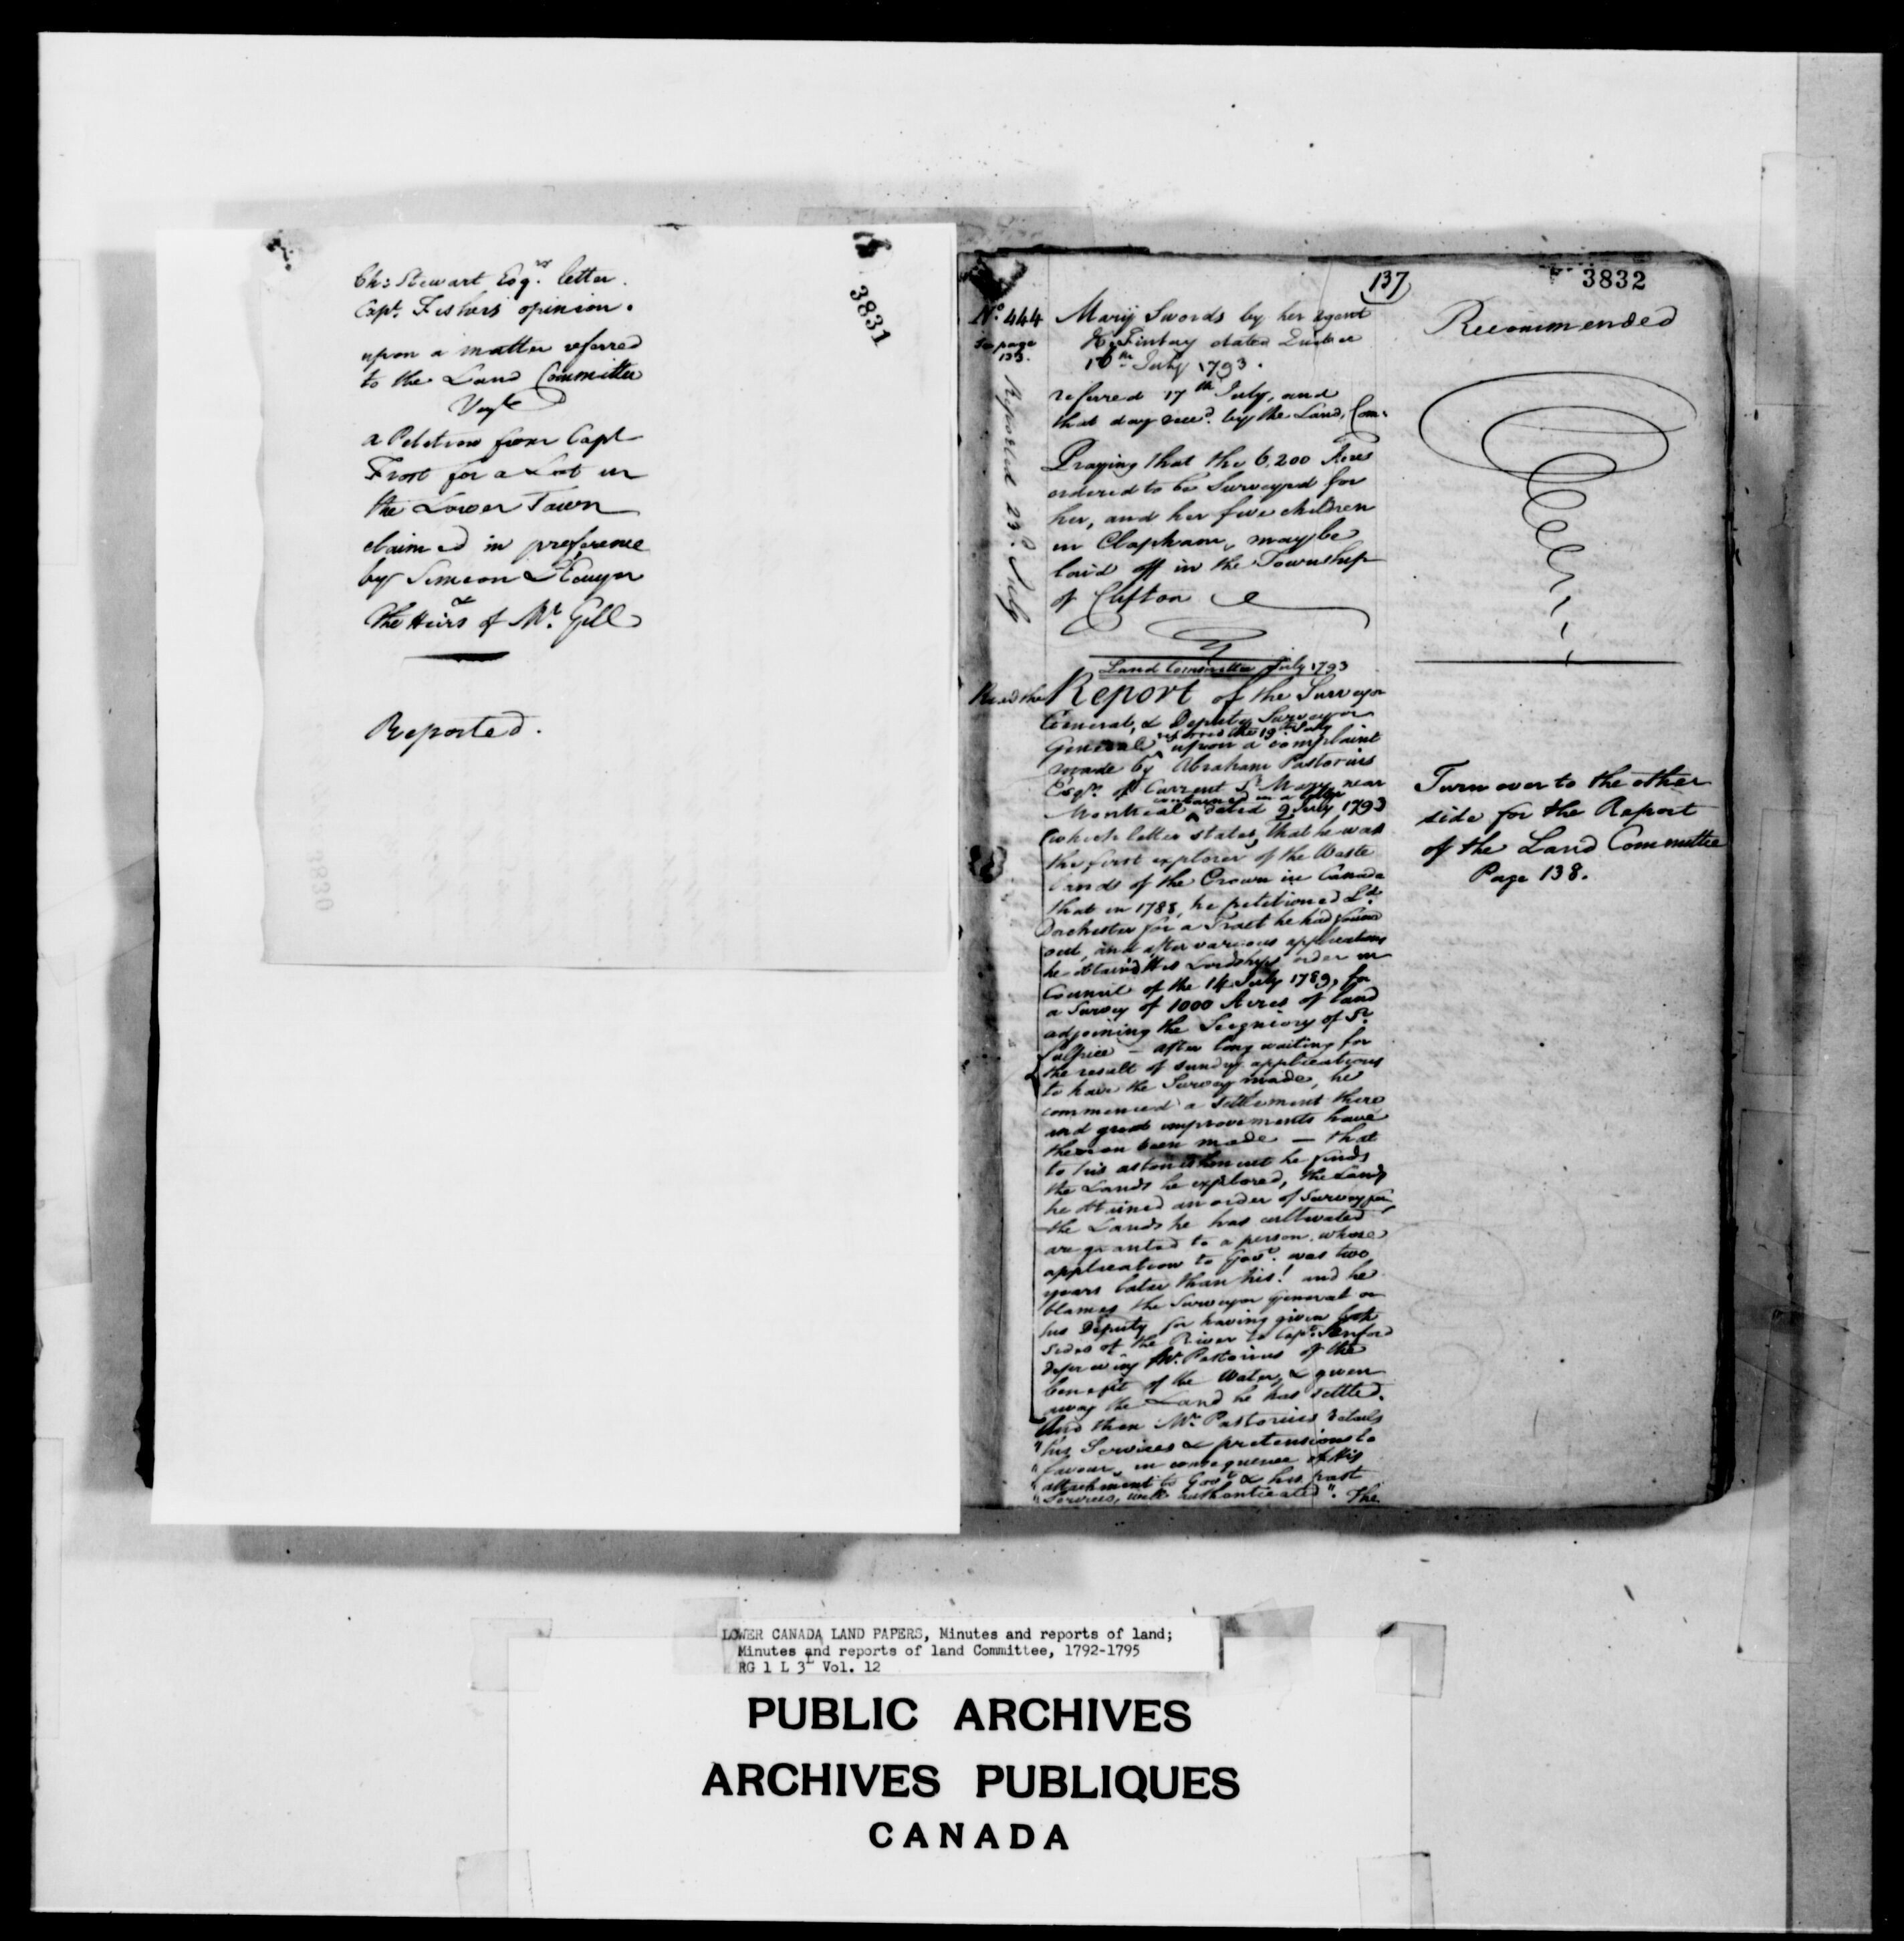 3831
Chs Stewart Esqrs. letter.
Capt. Fishers opinion.
upon a matter referred
to the Land Committee
Vizt
a Petition from Capt
Frost for a Lot in
the Lower Town
claimed in preference
by Simeon
& the Heirs of Mr. Gill
Reported.
137
3832
No. 444
See page
133.
Reported 23d. July
Mary Swords by her agent
H. Finlay dated Quebec
16th July 1793.
referred 17th July, and
that day recd. by the Land Com.
Praying that the 6,200 Acres
ordered to be Surveyed for
her, and her five children
in Clapham, may be
laid off in the Township
of Clifton
Recommended
Land Committee July 1793
Read the Report of the Surveyor
General, & Deputy Surveyor
General referred the 19th July upon a complaint
made by Abraham Pastorius
Esqr. of Current St. Mary near
Montreal contained in a letter dated 9 July 1793
which letter states, that he was
the first explorer of the Waste
Lands of the Crown in Canada
that in 1788, he petitioned Ld.
Dorchester for a Tract he had found
out, and after various applications
he obtained His Lordships order in
Council of the 14 July 1789, for
a Survey of 1000 Acres of land
adjoining the Seigniory of St.
Sulpice — after long waiting for
the result of sundry applications
to have the Survey made, he
commenced a settlement there
and great improvements have
thereon been made — that
to his astonishment he finds
the Lands he explored, the Lands
he obtained an order of Survey for,
the Lands he has cultivated
are granted to a person whose
application to Govt. was two
years later than his! and he
blames the Surveyor General or
his Deputy for having given both
sides of the River to Capt. Sanford
depriving Mr. Pastorius of the
benefit of the Water, & given
away the Land he has settled.
And then Mr. Pastorius details
"his Services & pretensions to
"favour, in consequence of his
"attachment to Govt. & his past
"Services, well authenticated". The
Turn over to the other
side for the Report
of the Land Committee
Page 138.
LOWER CANADA LAND PAPERS, Minutes and reports of land;
Minutes and reports of land Committee, 1792-1795
RG 1 L 3L Vol. 12
PUBLIC ARCHIVES
ARCHIVES PUBLIQUES
CANADA